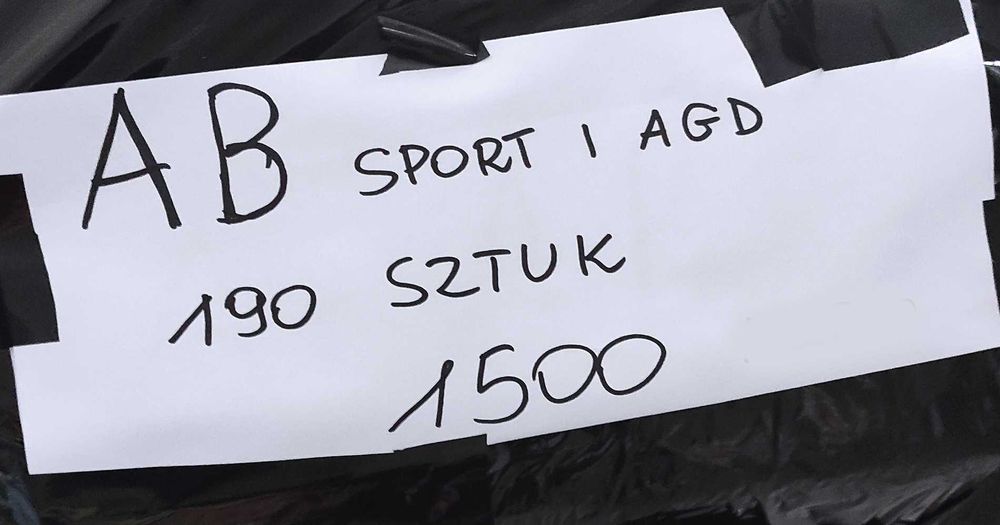 AB SPORT I AGD
190 SZTUK
1500